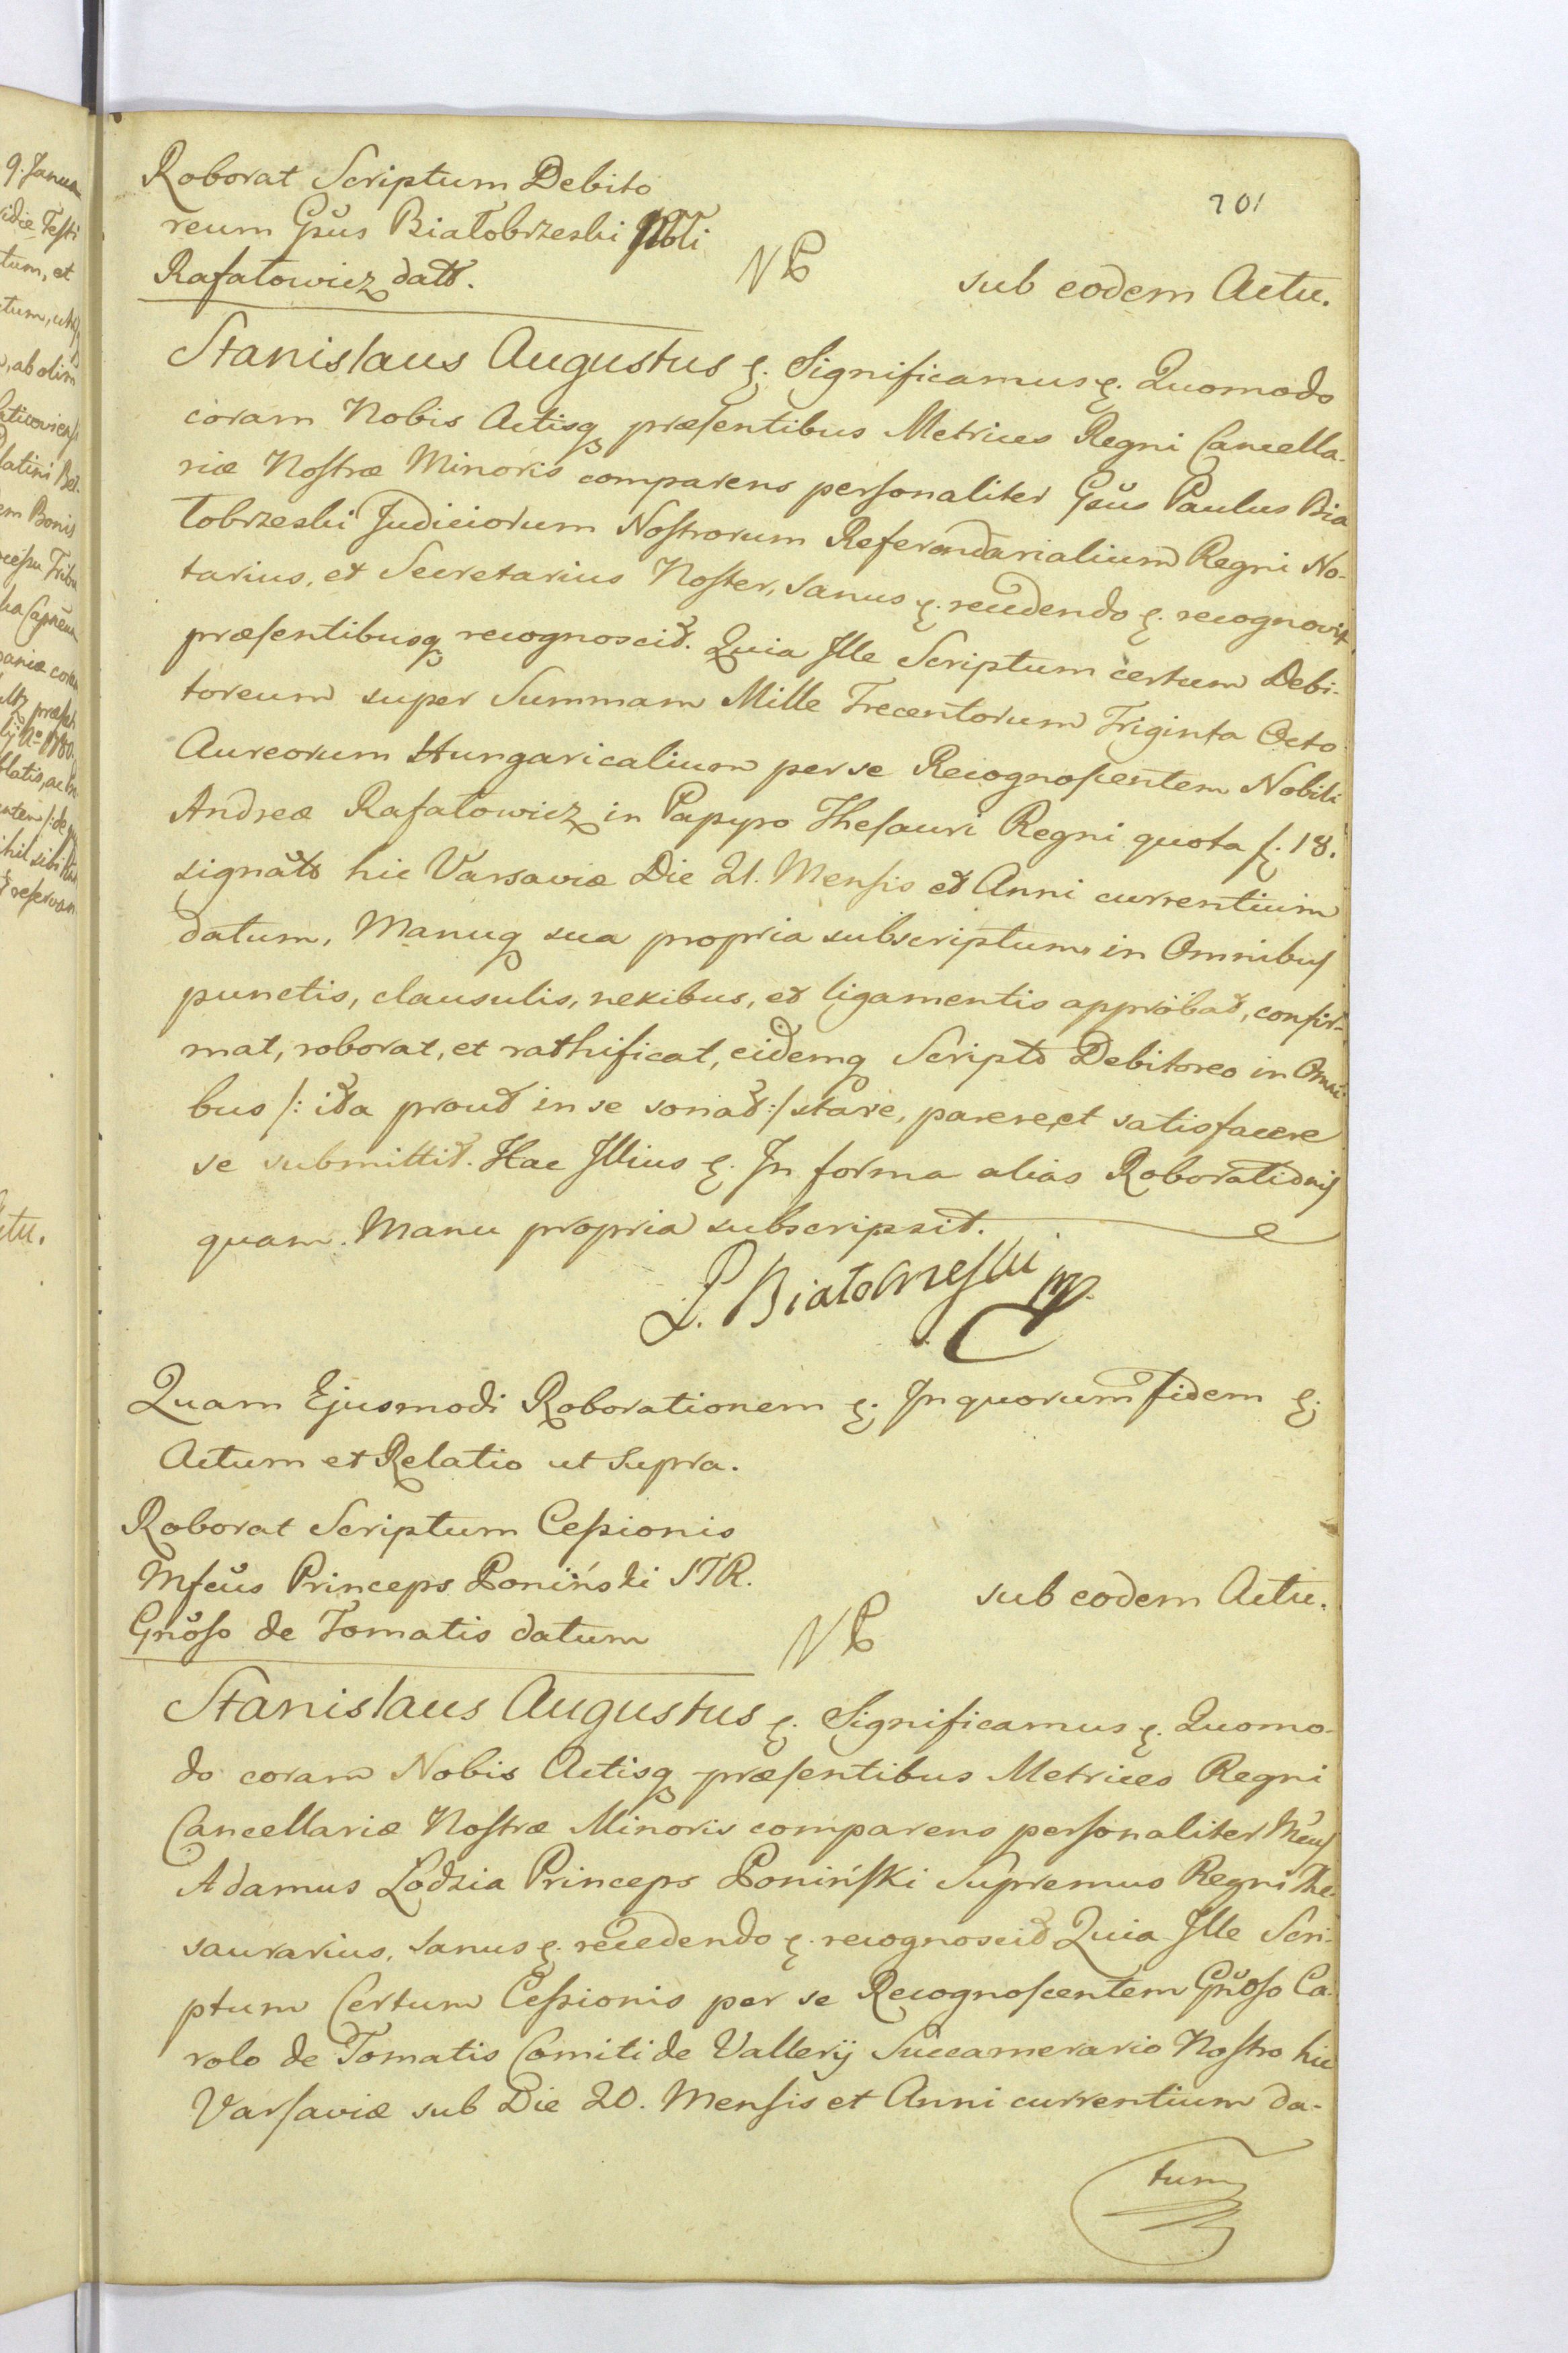 201
Roborat Scriptum Debito
reum Gsus Białobrzeski Nbli
Rafałowicz datt.
NB
sub eodem Actu.
Stanislaus Augustus &. Significamus &. Quomodo
coram Nobis Actisq præsentibus Metrices Regni Cancella-
riæ Nostræ Minoris comparens personaliter Gsus Paulus Bia
łobrzeski Judiciorum Nostrorum Referendarialium Regni No-
tarius, et Secretarius Noster, sanus &. recedendo &. recognovit
præsentibusq recognoscit. Quia Ille Scriptum certum Debi-
toreum super Summam Mille Trecentorum Triginta Octo
Aureorum Hungaricalium per se Recognoscentem Nobili
Andreæ Rafałowicz in Papyro Thesauri Regni quota f. 18.
signato hic Varsaviæ Die 21. Mensis et Anni currentium
datum, Manuq sua propria subscriptum in Omnibus
punctis, clausulis, nexibus, et ligamentis approbat, confir-
mat, roborat, et rathificat, eidemq Scripto Debitoreo in Omni
bus /: ita prout in se sonat :/ stare, parere, et satisfacere
se submittit. Hac Illius &. In forma alias Roborationis
quam. Manu propria subscripsit.
P. Białobrzeski mp.
Quam Ejusmodi Roborationem &. In quorum fidem &.
Actum et Relatio ut Supra.
Roborat Scriptum Cessionis
Mfcus Princeps Poniński STR.
Gnoso de Tomatis datum
NB
sub eodem Actu.
Stanislaus Augustus &. Significamus &. Quomo-
do coram Nobis Actisq præsentibus Metrices Regni
Cancellariæ Nostræ Minoris comparens personaliter Mcus
Adamus Lodzia Princeps Poniński Supremus Regni The-
saurarius, sanus &. recedendo &. recognoscit Quia Ille Scri-
ptum Certum Cessionis per se Recognoscentem Gnoso Ca-
rolo de Tomatis Comiti de Vallerij Succamerario Nostro hic
Varsaviæ sub Die 20. Mensis et Anni currentium da-
tum